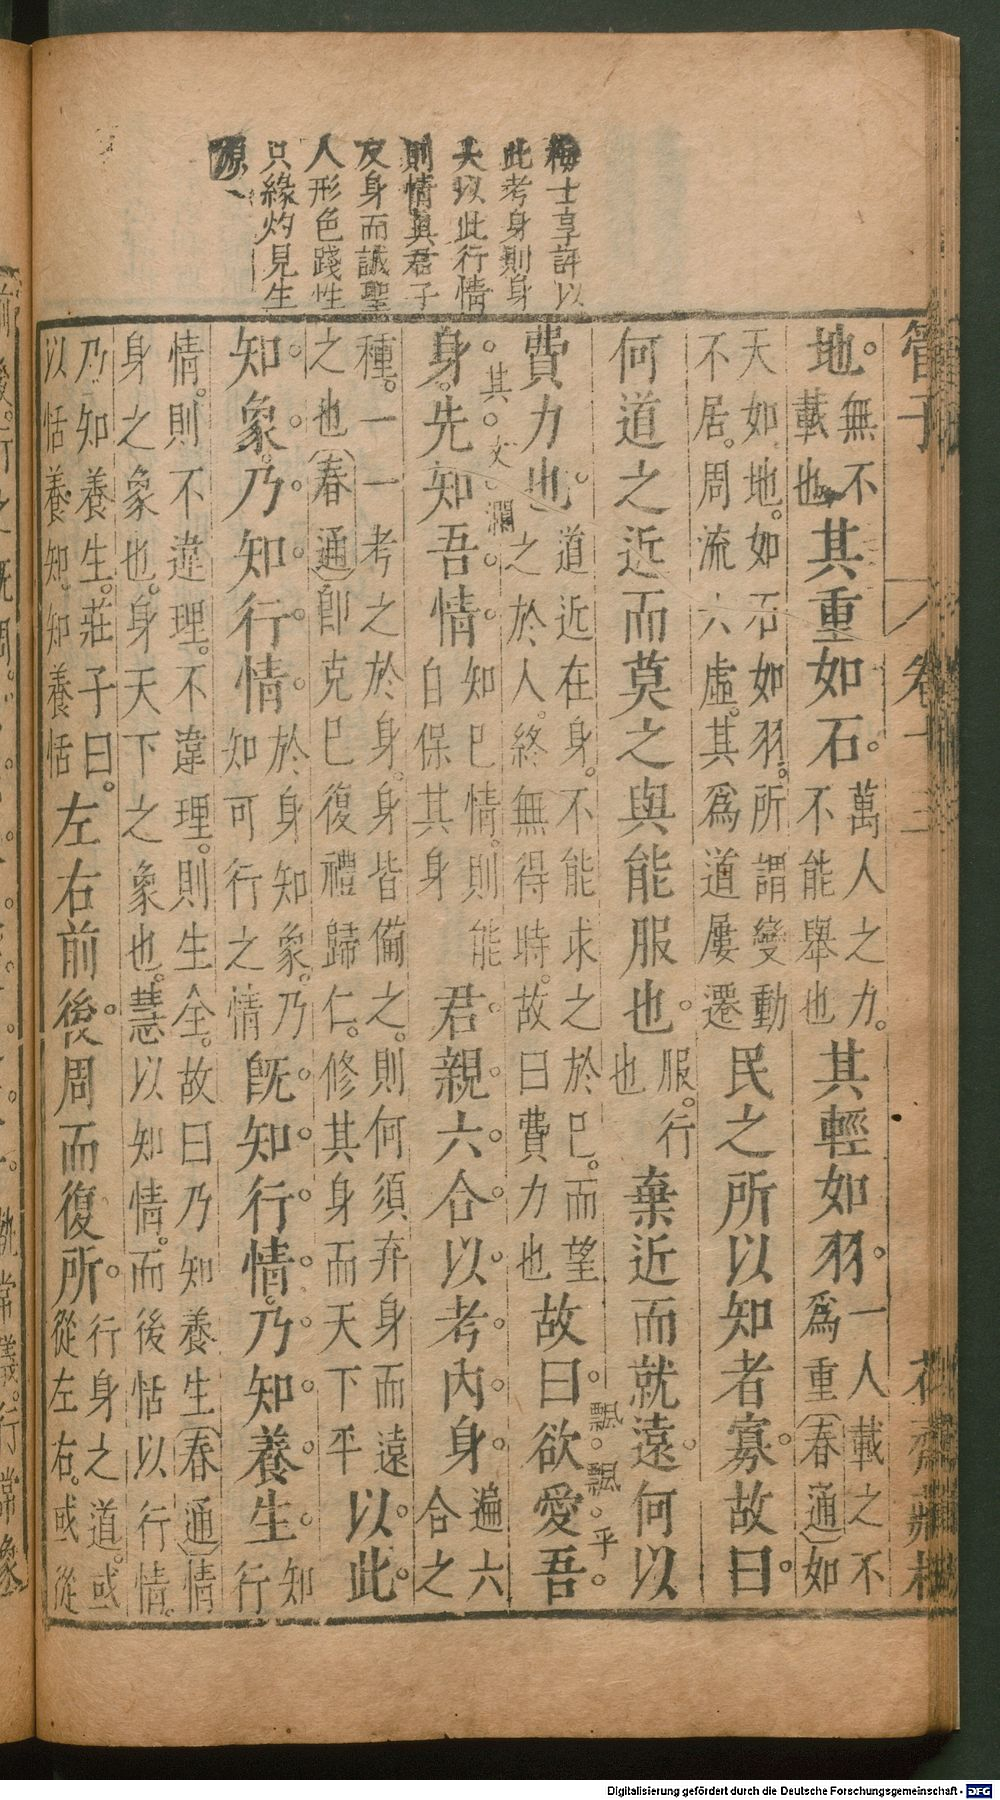 梅士享評以
此考身則身
天以此行情
則情與君子
友身而誠聖
人形色踐性
只緣灼見生
源
管子
卷十三
花齋藏板
地。無不載也其重如石。萬人之力。不能舉也其輕如羽。一人載之不為重(春通)如
天如地。如石如羽。所謂變動不居。周流六虛。其為道屢遷民之所以知者寡。故曰。
何道之近而莫之與能服也。服。行也棄近而就遠。何以
費力也。道近在身。不能求之於己。而望之於人。終無得時。故曰費力也故曰。欲愛吾。
飄。飄。乎
身。先知吾情。知已情。則能自保其身君。親六合。以考內身。遍六合之
其。文。瀾
種。一一考之於身。身皆備之。則何須弃身而遠之也(春通)卽克已復禮歸仁。修其身而天下平以。此。
知象。乃知行情。於身知象。乃知可行之情旣知行情。乃知養生。知行
情。則不違理。不違理。則生全。故曰乃知養生(春通)情
身之象也。身天下之象也。慧以知情。而後恬以行情。
乃知養生。莊子曰。以恬養知。知養恬左右前後。周而復所。行身之道。或從左右。或從